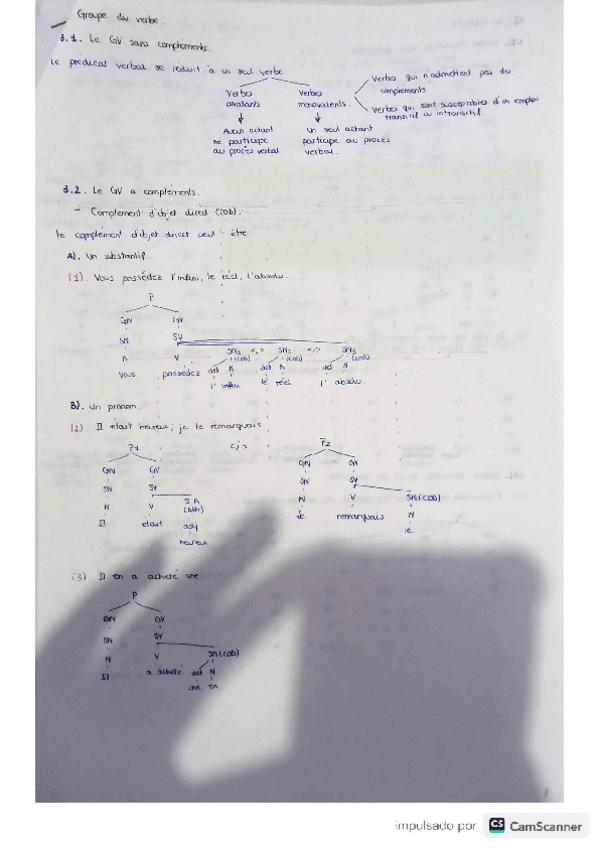 Groupe du verbe.
3.1. Le GV sans compléments.
Le prédicat verbal se réduit à un seul verbe
Verbes avalants
Aucun actant ne participe au procès verbal
Verbes monovalents.
Un seul actant participe au procès verbal.
Verbes qui n'admettent pas des compléments
Verbes qui sont susceptibles d'un emploi transitif ou intransitif.
3.2. Le GV a compléments.
- Complément d'objet direct (COD).
Le complément d'objet direct peut être
A). Un substantif.
(1). Vous possédez l'infini, le réel, l'absolu.
P
GN GV
SN SV
SN1 <,> SN2 <,> SN3
(COD) (COD) (COD)
N V det N det N det N
Vous possédez l' infini le réel l' absolu.
B). Un pronom.
(2) Il était heureux; je le remarquais
P1 <;> P2
GN GV GN GV
SN SV SN SV
N V SA (Attr) N V SN (COD)
Il était adj remarquais N
heureux le
(3) Il en a acheté une.
P
GN GV
SN SV
N V SN (COD)
Il a acheté det N
une en
impulsado por CS CamScanner